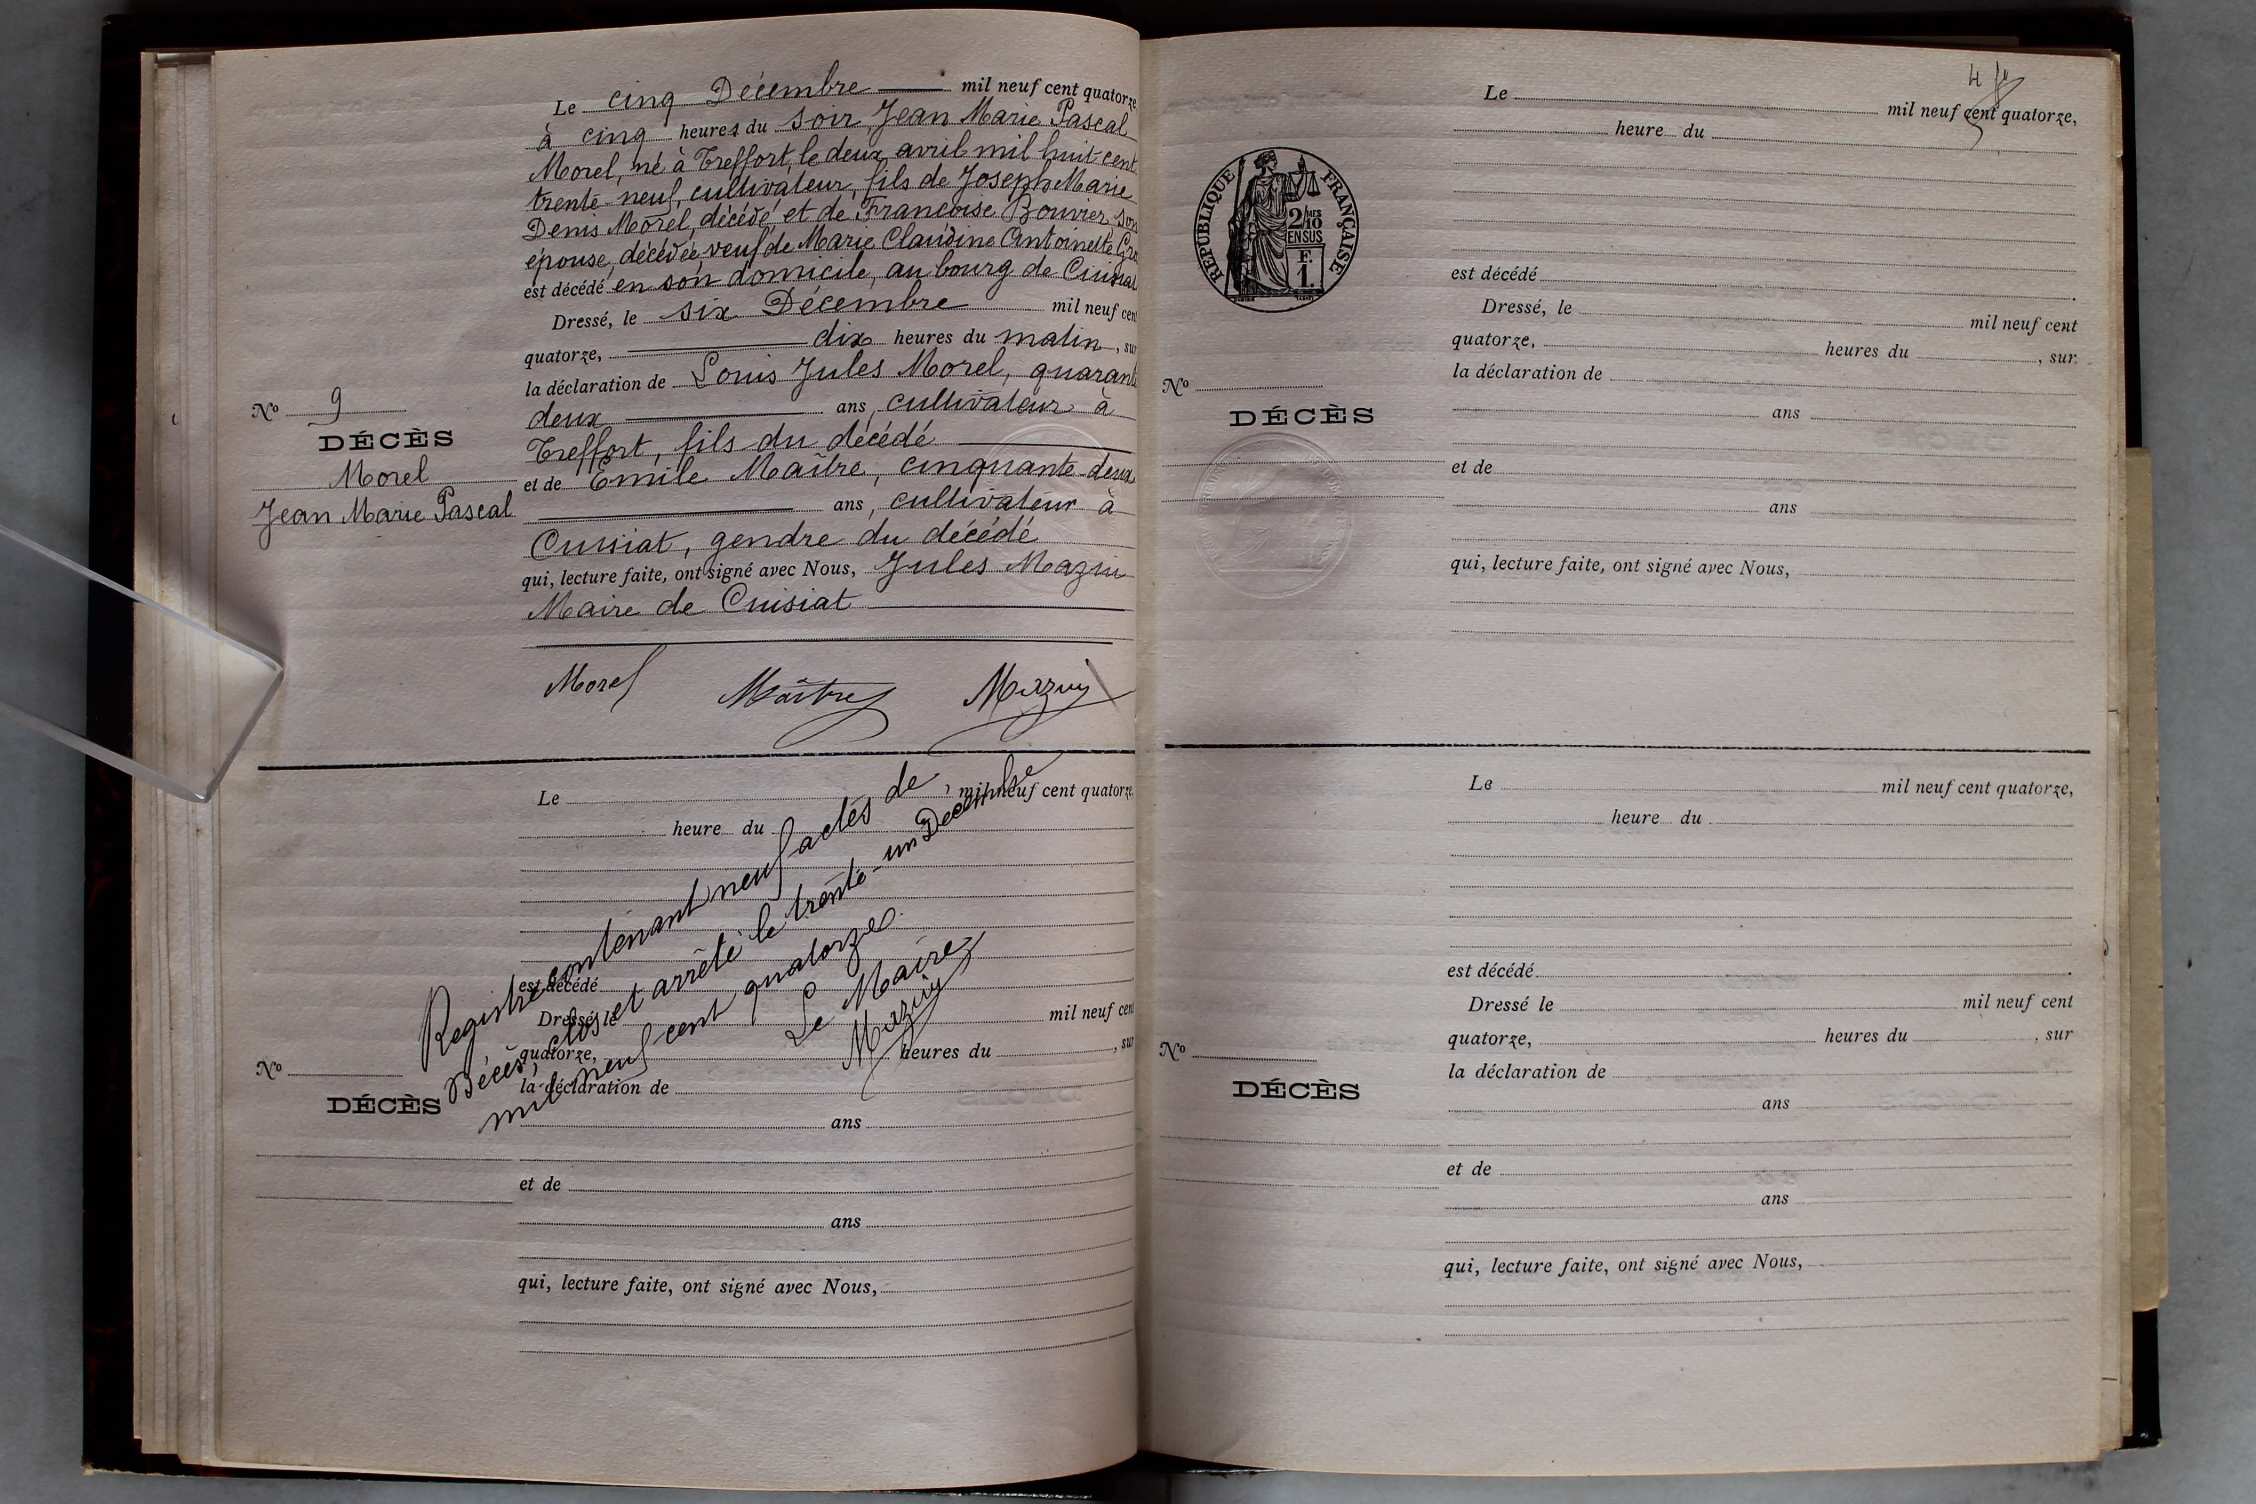 Le cinq Décembre mil neuf cent quatorze
à cinq heures du soir, Jean Marie Pascal
Morel, né à Treffort, le deux avril mil huit cent
trente-neuf, cultivateur, fils de Joseph Marie
Denis Morel, décédé, et de Françoise Bouvier, son
épouse, décédée, veuf de Marie Claudine Antoinette
est décédé en son domicile, au bourg de Cuisiat
Dressé, le six Décembre mil neuf cent
quatorze, dix heures du matin, sur
la déclaration de Louis Jules Morel, quarante
deux ans, cultivateur à
Treffort, fils du décédé
et de Emile Maître, cinquante-deux
ans, cultivateur à
Cuisiat, gendre du décédé
qui, lecture faite, ont signé avec Nous, Jules Mazuy
Maire de Cuisiat
Morel Maître Mazuy
No 9
DÉCÈS
Morel
Jean Marie Pascal
Le mil neuf cent quatorze,
heure du
est décédé
Dressé le mil neuf cent
quatorze, heures du , sur
la déclaration de
ans
et de
ans
qui, lecture faite, ont signé avec Nous,
No
DÉCÈS
Registre contenant neuf actes de
Décès, clos et arrêté le trente-un Décembre
mil neuf cent quatorze.
Le Maire
Mazuy
4
Le mil neuf cent quatorze,
heure du
RÉPUBLIQUE FRANÇAISE
2/10 MES
EN SUS
F.
1.
est décédé
Dressé, le mil neuf cent
quatorze, heures du , sur
la déclaration de
ans
et de
ans
qui, lecture faite, ont signé avec Nous,
No
DÉCÈS
Le mil neuf cent quatorze,
heure du
est décédé
Dressé le mil neuf cent
quatorze, heures du , sur
la déclaration de
ans
et de
ans
qui, lecture faite, ont signé avec Nous,
No
DÉCÈS